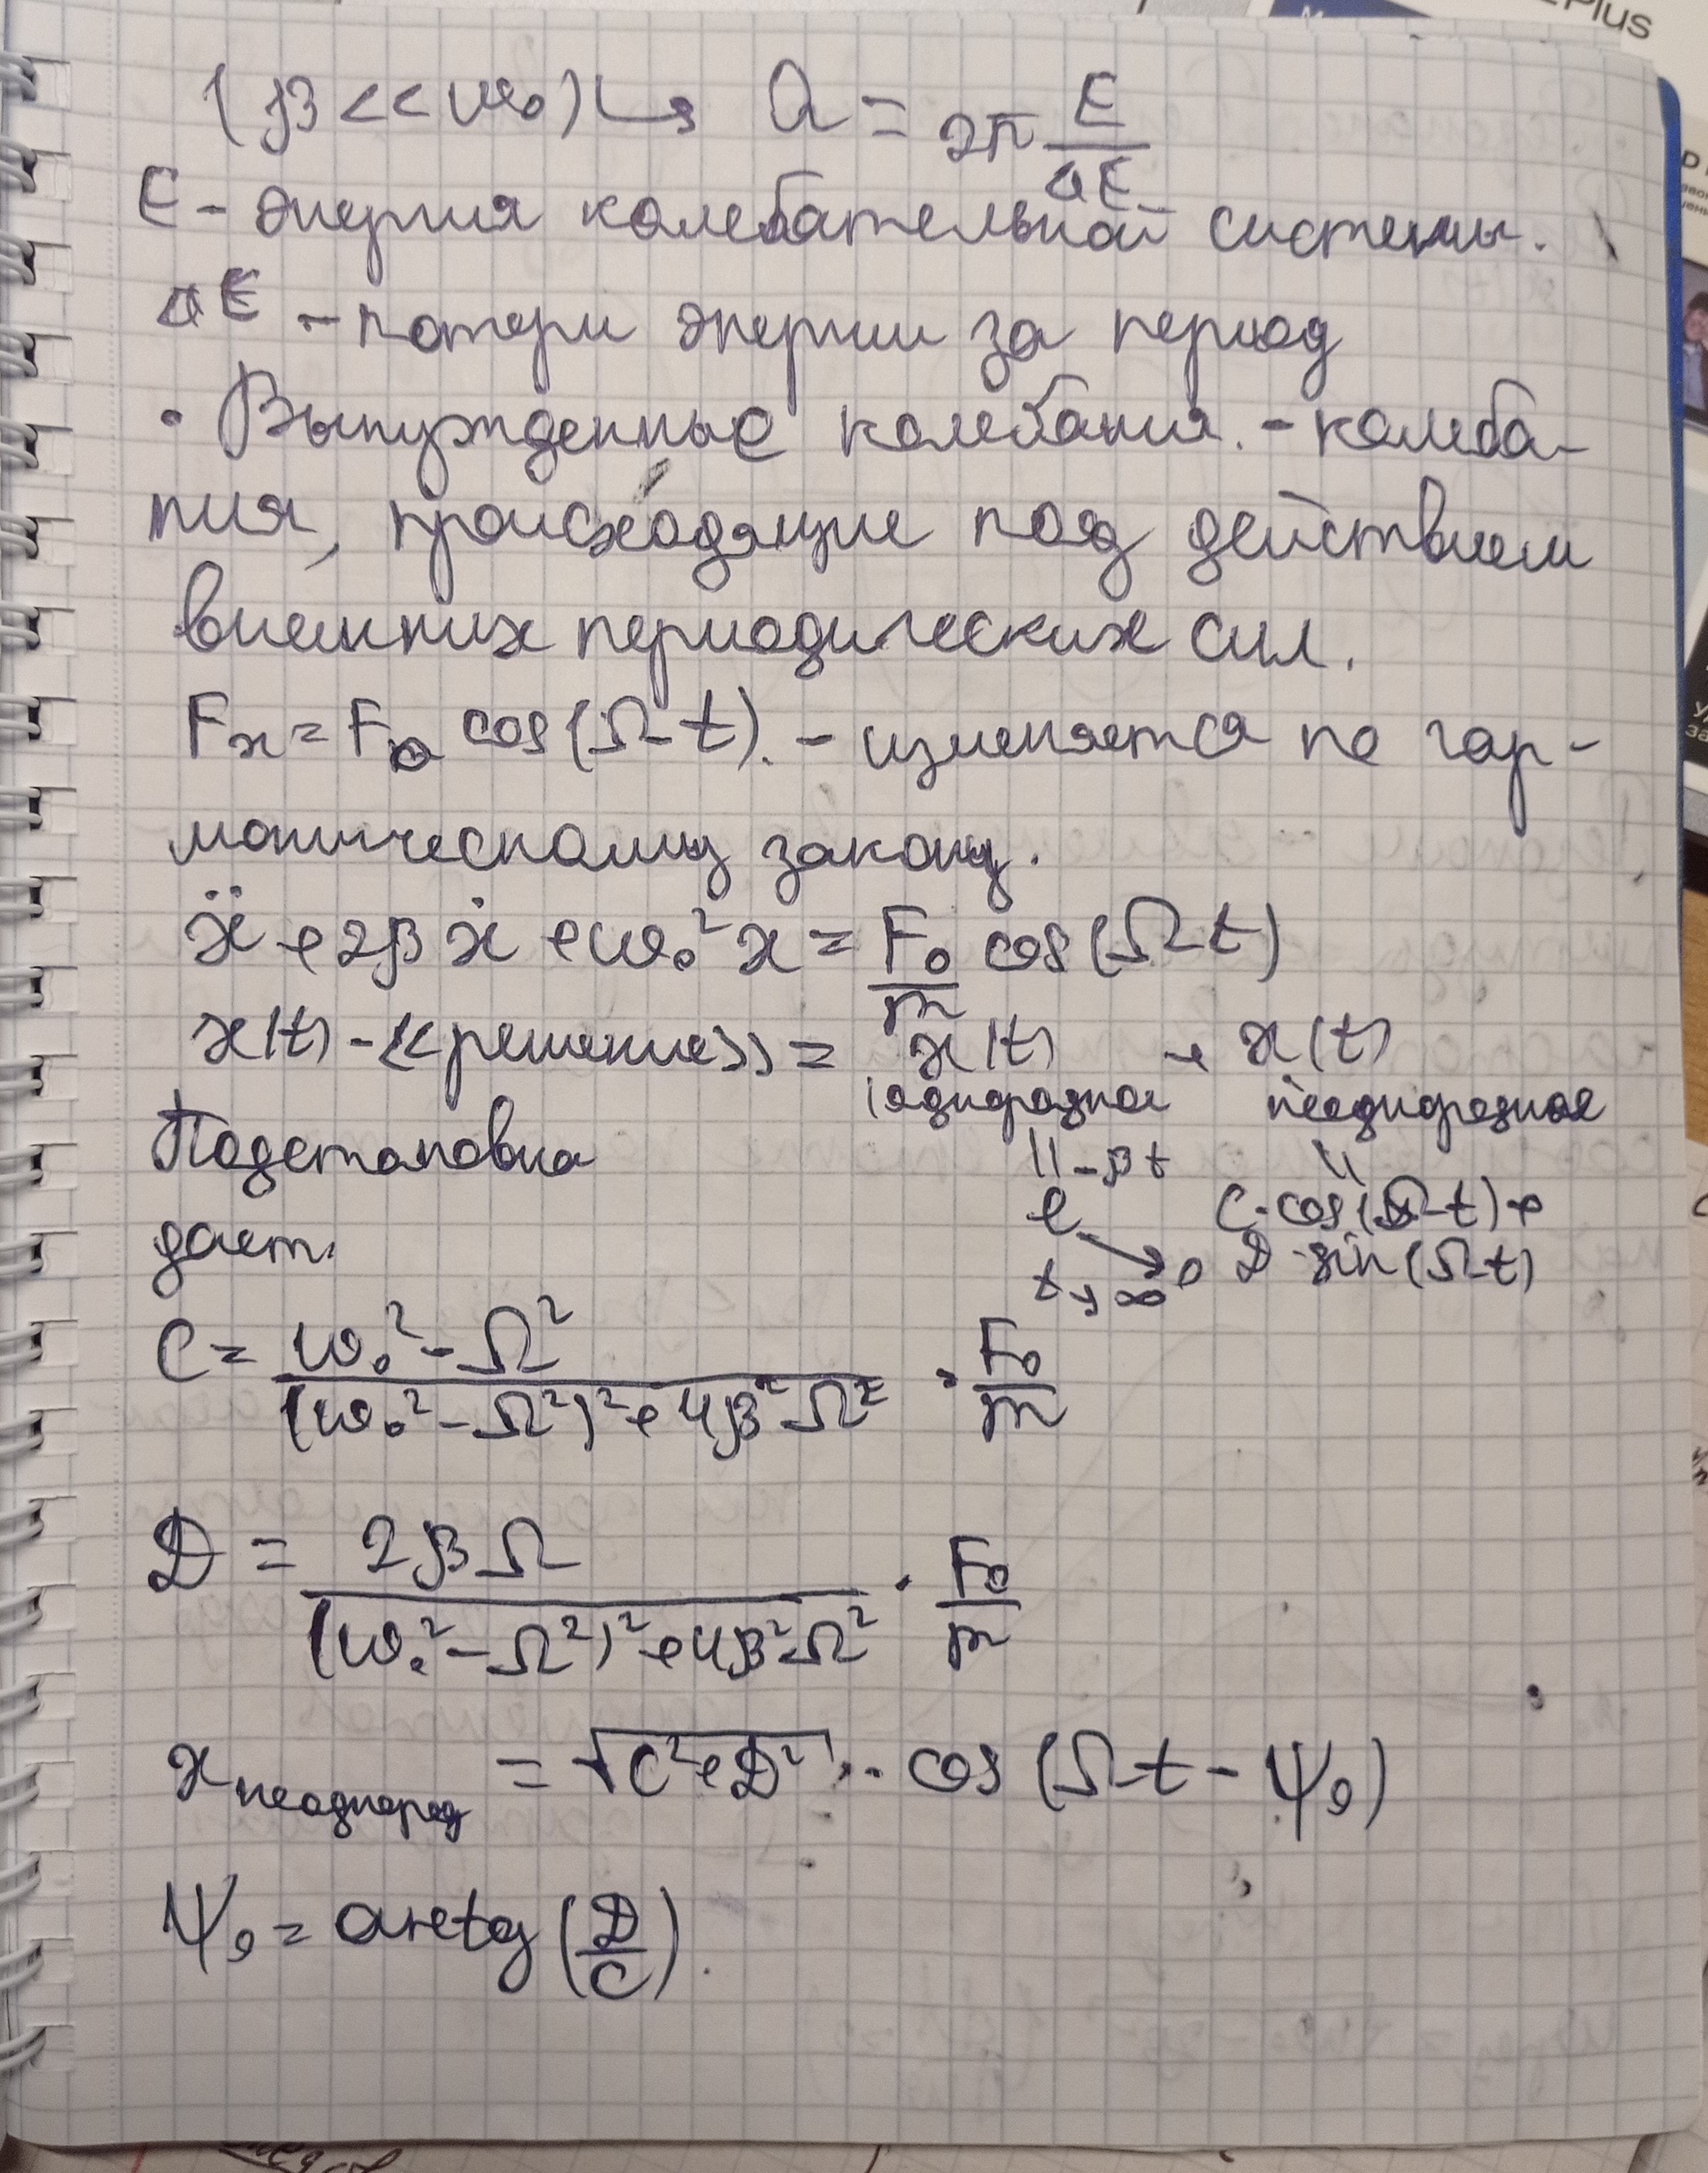 (β << ω₀) ↳ Q = 2π E/ΔE
E - энергия колебательной системы.
ΔE - потери энергии за период
• Вынужденные колебания. - колеба-
ния, происходящие под действием
внешних периодических сил.
Fx = F₀ cos(Ωt). - изменяется по гар-
моническому закону.
ẍ + 2βẋ + ω₀²x = F₀/m cos(Ωt)
x(t) - «решение» = x(t) + x(t)
однородное неоднородное
Подстановка
дает.
|| ||
e^(-βt) → 0 C·cos(Ωt) +
t→∞ D·sin(Ωt)
C = (ω₀² - Ω²)/((ω₀² - Ω²)² + 4β²Ω²) · F₀/m
D = 2βΩ/((ω₀² - Ω²)² + 4β²Ω²) · F₀/m
x неоднород = √(C² + D²) · cos(Ωt - ψ₀)
ψ₀ = arctg(D/C).
Plus